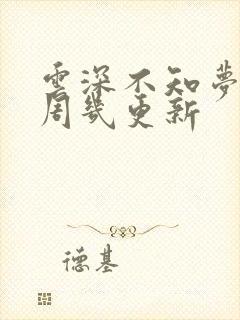 雲深不知夢
周幾更新
德基